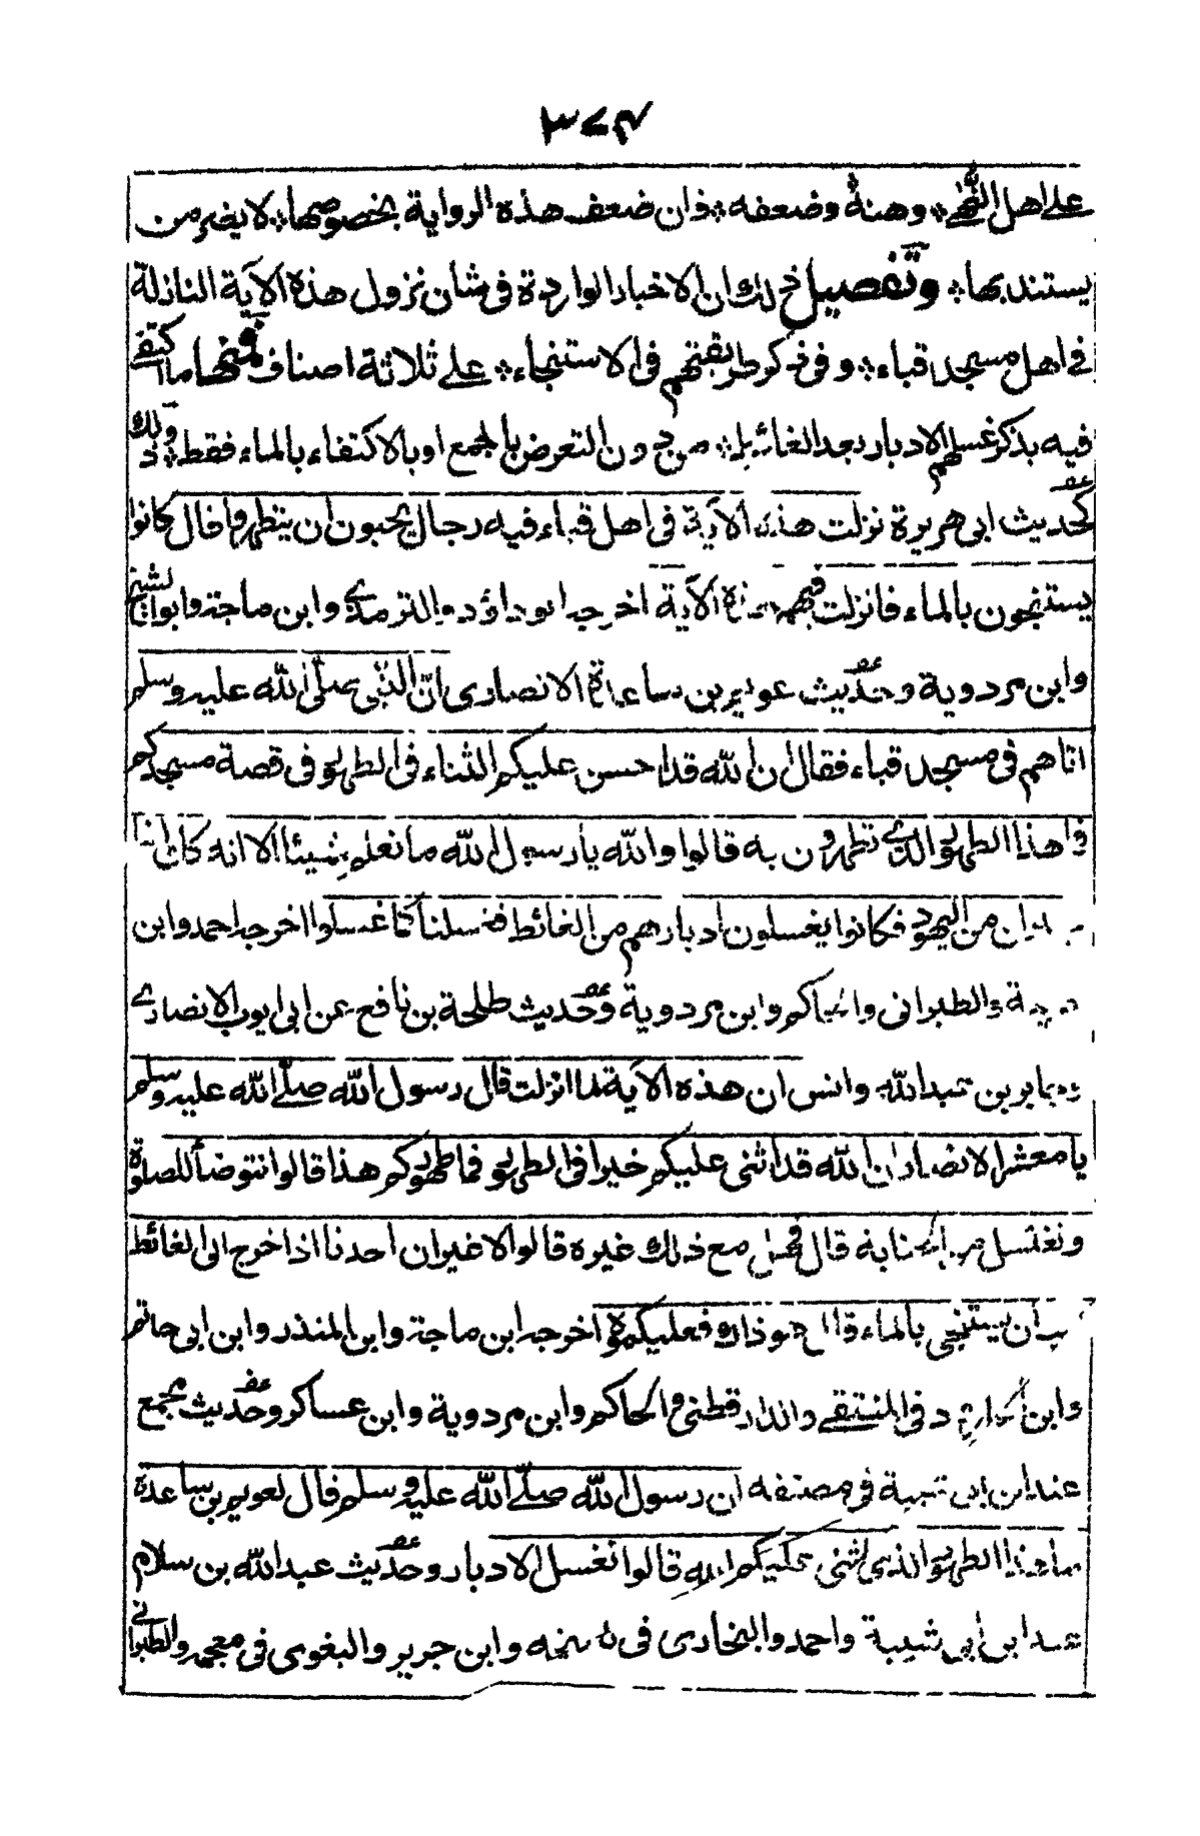 ٣٧٤
على اهل النُّهٰى ؞ وهنهٗ وضعفه ؞ فان ضعف هذه الرواية بخصوصها ؞ لا يضر من
يستند بها ؞ وتفصيل ذلك ان الاخبار الواردة فى شان نزول هذه الآية النازلة
فى اهل مسجد قباء ؞ وفى ذكر طريقتهم فى الاستنجاء ؞ على ثلاثة اصناف فمنها ما اكتفى
فيه بذكر غسلهم الادبار بعد الغائط ؞ من دون التعرض بالجمع او بالاكتفاء بالماء فقط ؞ وذلك
كحديث ابى هريرة نزلت هذه الآية فى اهل قباء فيه رجال يحبون ان يتطهروا قال كانوا
يستنجون بالماء فانزلت فيهم هذه الآية اخرجه ابو داؤد والترمذى وابن ماجة وابو الشيخ
وابن مردوية وحديث عويمر بن ساعدة الانصارى انّ النبى صلى الله عليه وسلم
اتاهم فى مسجد قباء فقال ان الله قد احسن عليكم الثناء فى الطهور فى قصة مسجدكم
فما هذا الطهور الذى تطهرون به قالوا والله يا رسول الله ما نعلم شيئا الا انه كان لنا
جيران من اليهود فكانوا يغسلون ادبارهم من الغائط فغسلنا كما غسلوا اخرجه احمد وابن
خزيمة والطبرانى والحاكم وابن مردوية وحديث طلحة بن نافع عن ابى ايوب الانصارى
وجابر بن عبد الله وانس ان هذه الآية لما انزلت قال رسول الله صلى الله عليه وسلم
يا معشر الانصار ان الله قد اثنى عليكم خيرا فى الطهور فما طهوركم هذا قالوا نتوضأ للصلوة
ونغتسل من الجنابة قال فهل مع ذلك غيره قالوا لا غير ان احدنا اذا خرج الى الغائط
احب ان يستنجى بالماء قال هو ذاك فعليكموه اخرجه ابن ماجة وابن المنذر وابن ابى حاتم
وابن الجارود فى المنتقى والدارقطنى والحاكم وابن مردوية وابن عساكر وحديث مجمع
عند ابن ابى شيبة فى مصنفه ان رسول الله صلى الله عليه وسلم قال لعويمر بن ساعدة
ما هذا الطهور الذى اثنى عليكم الله قالوا نغسل الادبار وحديث عبد الله بن سلام
عند ابن ابى شيبة واحمد والبخارى فى تاريخه وابن جرير والبغوى فى معجمه والطبرانى